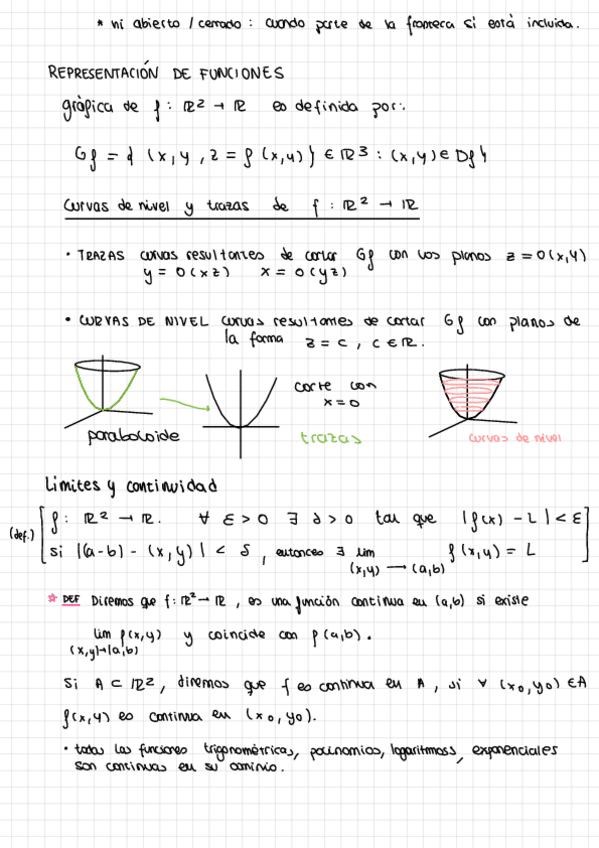 * ni abierto / cerrado : cuando parte de la frontera si está incluida.
REPRESENTACIÓN DE FUNCIONES
gráfica de f : ℝ² → ℝ es definida por:.
Gf = { (x, y, z = f (x,y) } ∈ ℝ3 : (x,y) ∈ Df }
Curvas de nivel y trazas de f : ℝ² → ℝ
• TRAZAS curvas resultantes de cortar Gf con los planos z = 0 (x,y)
y = 0 (xz) x = 0 (yz)
• CURVAS DE NIVEL curvas resultantes de cortar Gf con planos de
la forma z = c , c ∈ ℝ.
corte con
x = 0
paraboloide
trazas
curvas de nivel
Límites y continuidad
(def.) f : ℝ² → ℝ. ∀ ε > 0 ∃ δ > 0 tal que |f(x) - L| < ε
si |(a-b) - (x,y)| < δ , entonces ∃ lim f(x,y) = L
(x,y) → (a,b)
* DEF Diremos que f : ℝ² → ℝ , es una función continua en (a,b) si existe
lim f(x,y) y coincide con f(a,b).
(x,y)→(a,b)
Si A ⊂ ℝ², diremos que f es continua en A , si ∀ (x0,y0) ∈ A
f(x,y) es continua en (x0, y0).
• todas las funciones trigonométricas, polinomios, logaritmos, exponenciales
son continuas en su dominio.